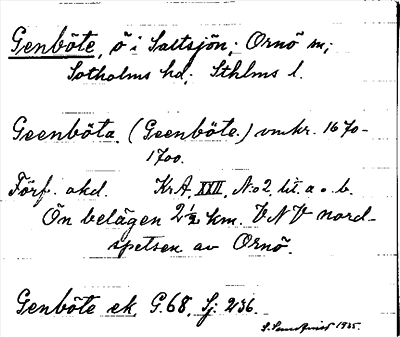 Genböte, ö i Saltsjön; Ornö sn;
Sotholms hd; Sthlms l.
Geenböta. (Geenböte.) omkr. 1670-
1700.
Förf. okd. KrA, XXII, No 2, lit. a o. b.
Ön belägen 2 1/2 km. VNV nord-
spetsen av Ornö.
Genböte ek. G.68, Sj: 236.
1935.